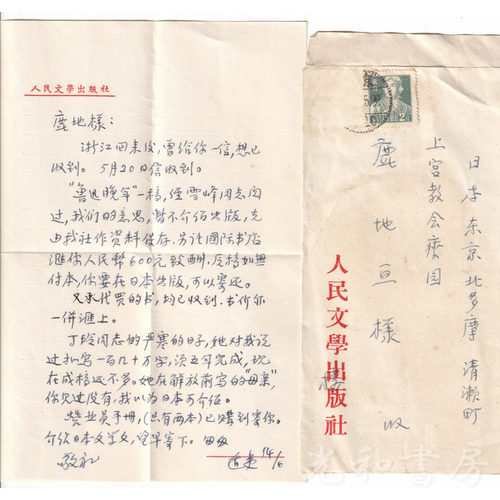 人民文學出版社
鹿地様：
浙江回来後，曾给你一信，想已
收到。5月20日信收到。
"鲁迅晚年"一稿，经雪峰同志阅
过，我们的意思，暂不介绍出版，先
由我社作资料保存。另托國际书店
滙你人民幣600元致酬。原稿如無
付本，你要在日本出版，可以寄还。
又承代买的书，均已收到。书价亦
一併滙上。
丁玲同志的严寒的日子，她对我说
过拟写一百几十万字，须五年完成，现
在成稿还不多。她在解放前写的"母亲"，
你见过没有，我以为日本可介绍。
营业员手册，(只有两本)已購到寄你。
介绍日本文学文，望早寄下。匆匆
敬礼
适夷 14/6
日本东京北多摩清瀬町
上宮教会療園
鹿地亘様 收
人民文學出版社
楼
光和書房